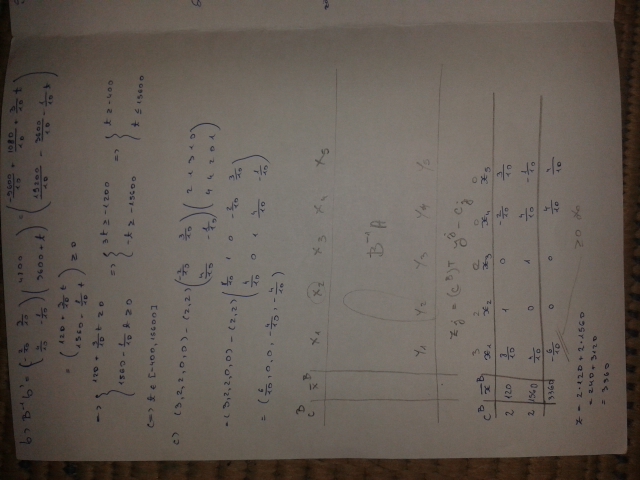 b) B⁻¹b' = ( -2/10 3/10 ; 4/10 -1/10 ) ( 4800 ; 3600 + t ) = ( -9600/10 + 1080/10 + 3/10 t ; 19200/10 - 3600/10 - 1/10 t )
= ( 120 + 3/10 t ; 1560 - 1/10 t ) ≥ 0
=> { 120 + 3/10 t ≥ 0 ; 1560 - 1/10 t ≥ 0 => { 3t ≥ -1200 ; -t ≥ -15600 => { t ≥ -400 ; t ≤ 15600
<=> t ∈ [-400, 15600]
c) (3,2,2,0,0) - (2,2) ( -2/10 3/10 ; 4/10 -1/10 ) ( 2 1 3 1 0 ; 4 4 2 0 1 )
= (3,2,2,0,0) - (2,2) ( 8/10 1 0 -2/10 3/10 ; 4/10 0 1 4/10 -1/10 )
= ( 6/10 , 0, 0, -4/10 , -4/10 )
C^B x̄^B x₁ x₂ x₃ x₄ x₅
B⁻¹A
Y₁ Y₂ Y₃ Y₄ Y₅
z_j = (c^B)^T y^j - c_j
3 2 2 0 0
C^B x̄^B x₁ x₂ x₃ x₄ x₅
2 120 8/10 1 0 -2/10 3/10
2 1560 4/10 0 1 4/10 -1/10
3360 -6/10 0 0 4/10 4/10
z = 2·120 + 2·1560
= 240 + 3120
= 3360